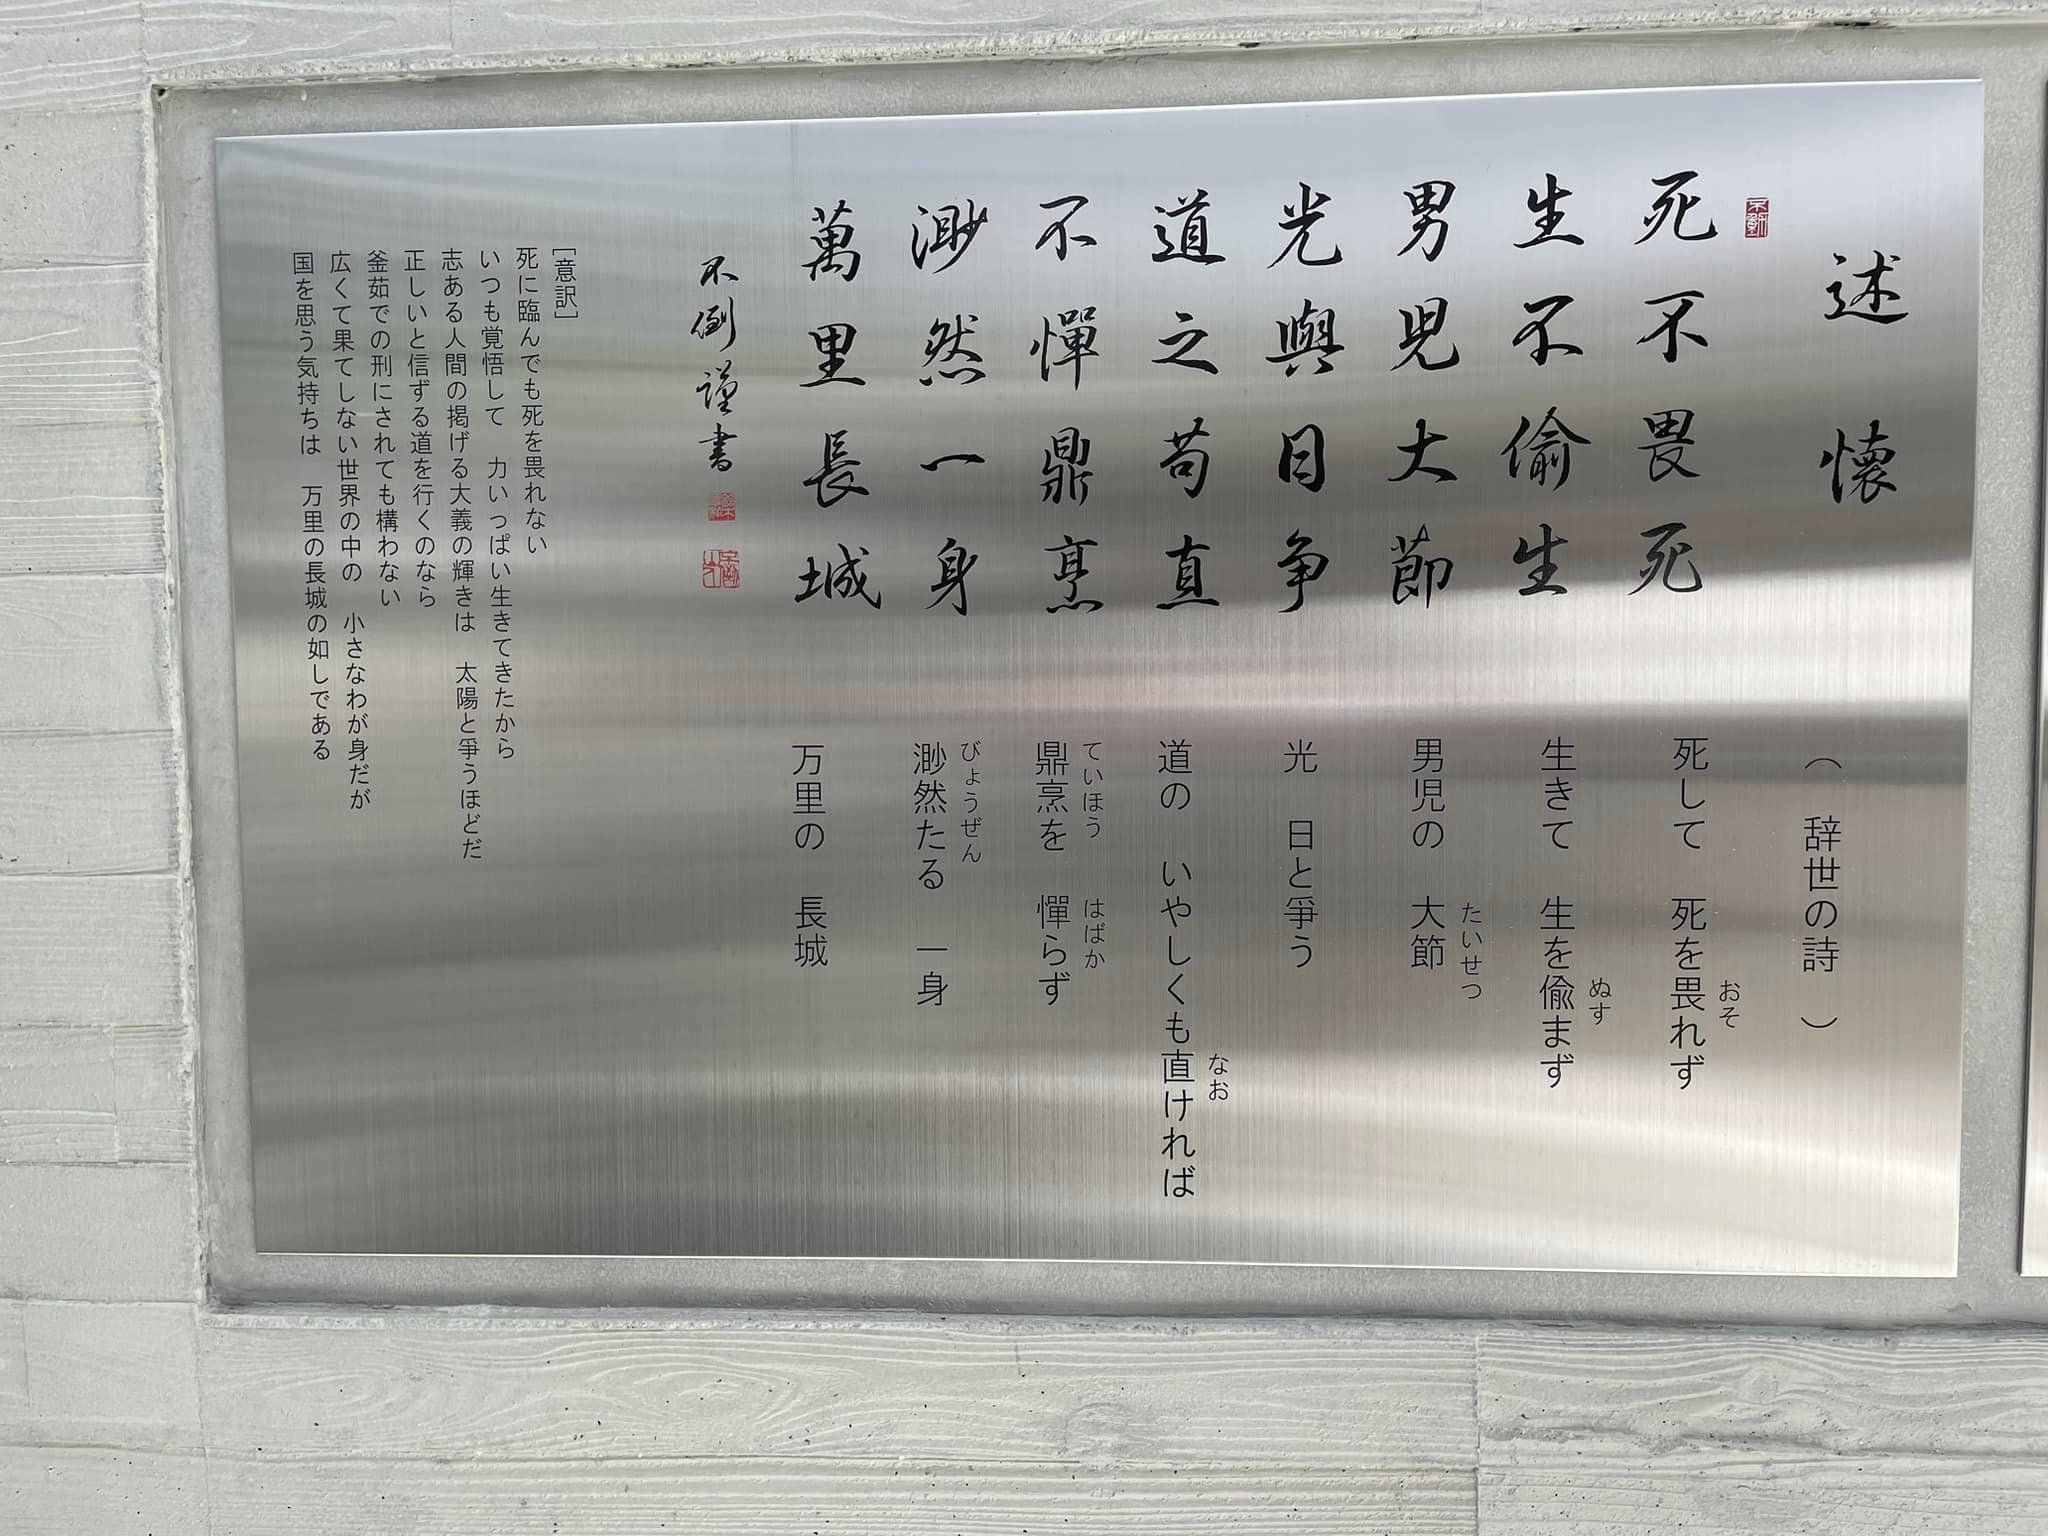 述懐
死不畏死
生不偸生
男児大節
光與日争
道之苟直
不憚鼎烹
渺然一身
萬里長城
不倒謹書
（辞世の詩）
死して　死を畏れず
おそ
生きて　生を偸まず
ぬす
男児の　大節
たいせつ
光　日と爭う
道の　いやしくも直ければ
なお
鼎烹を　憚らず
ていほう　はばか
渺然たる　一身
びょうぜん
万里の　長城
［意訳］
死に臨んでも死を畏れない
いつも覚悟して　力いっぱい生きてきたから
志ある人間の掲げる大義の輝きは　太陽と爭うほどだ
正しいと信ずる道を行くのなら
釜茹での刑にされても構わない
広くて果てしない世界の中の　小さなわが身だが
国を思う気持ちは　万里の長城の如しである